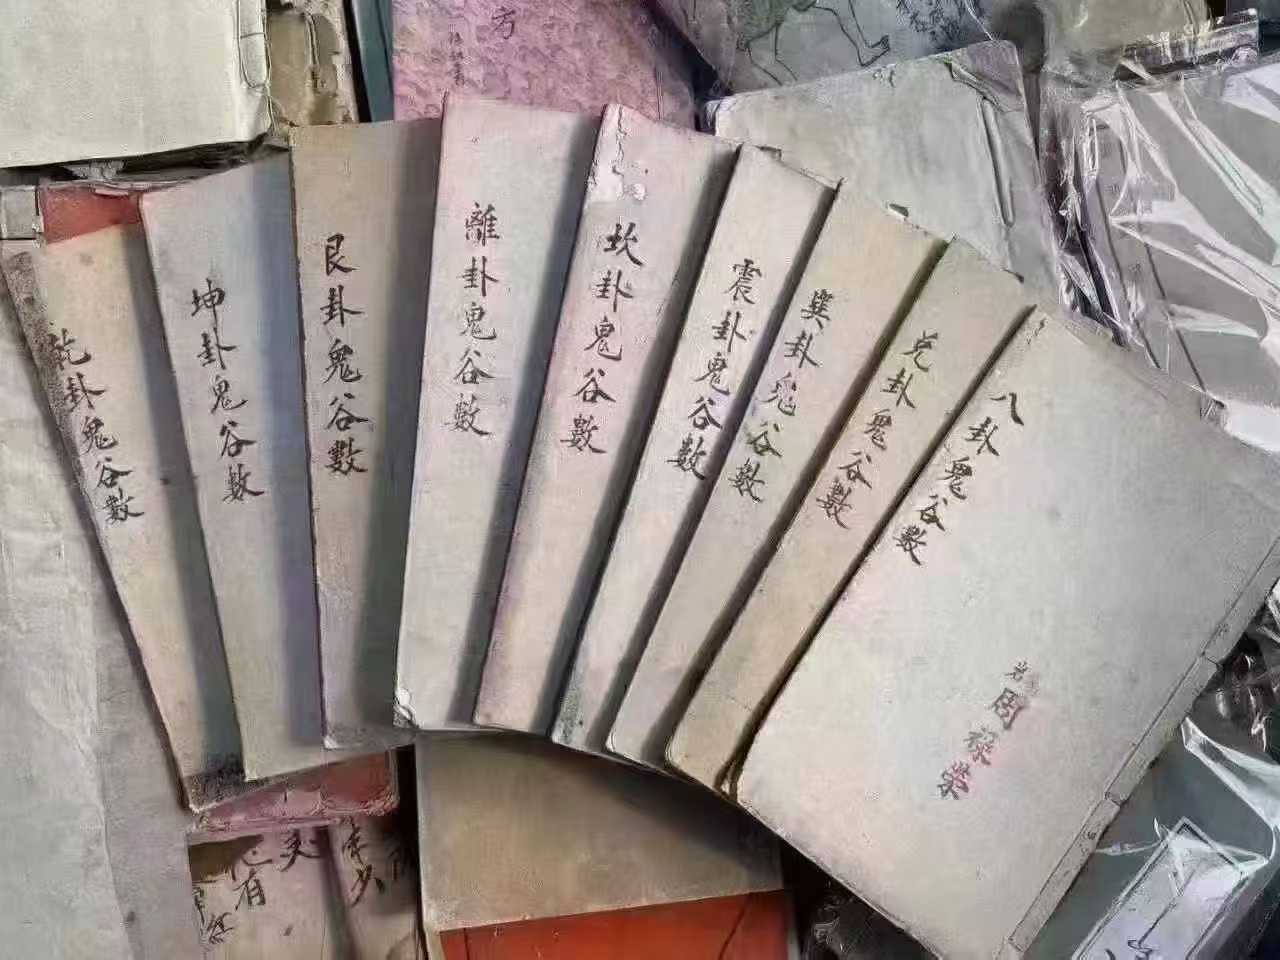 方
乾卦鬼谷數
坤卦鬼谷數
艮卦鬼谷數
離卦鬼谷數
坎卦鬼谷數
震卦鬼谷數
巽卦鬼谷數
兌卦鬼谷數
八卦鬼谷數
周祿榮